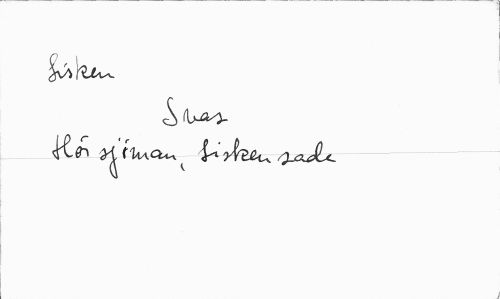 Lisken
Svas
Hör sjöman, Lisken sade